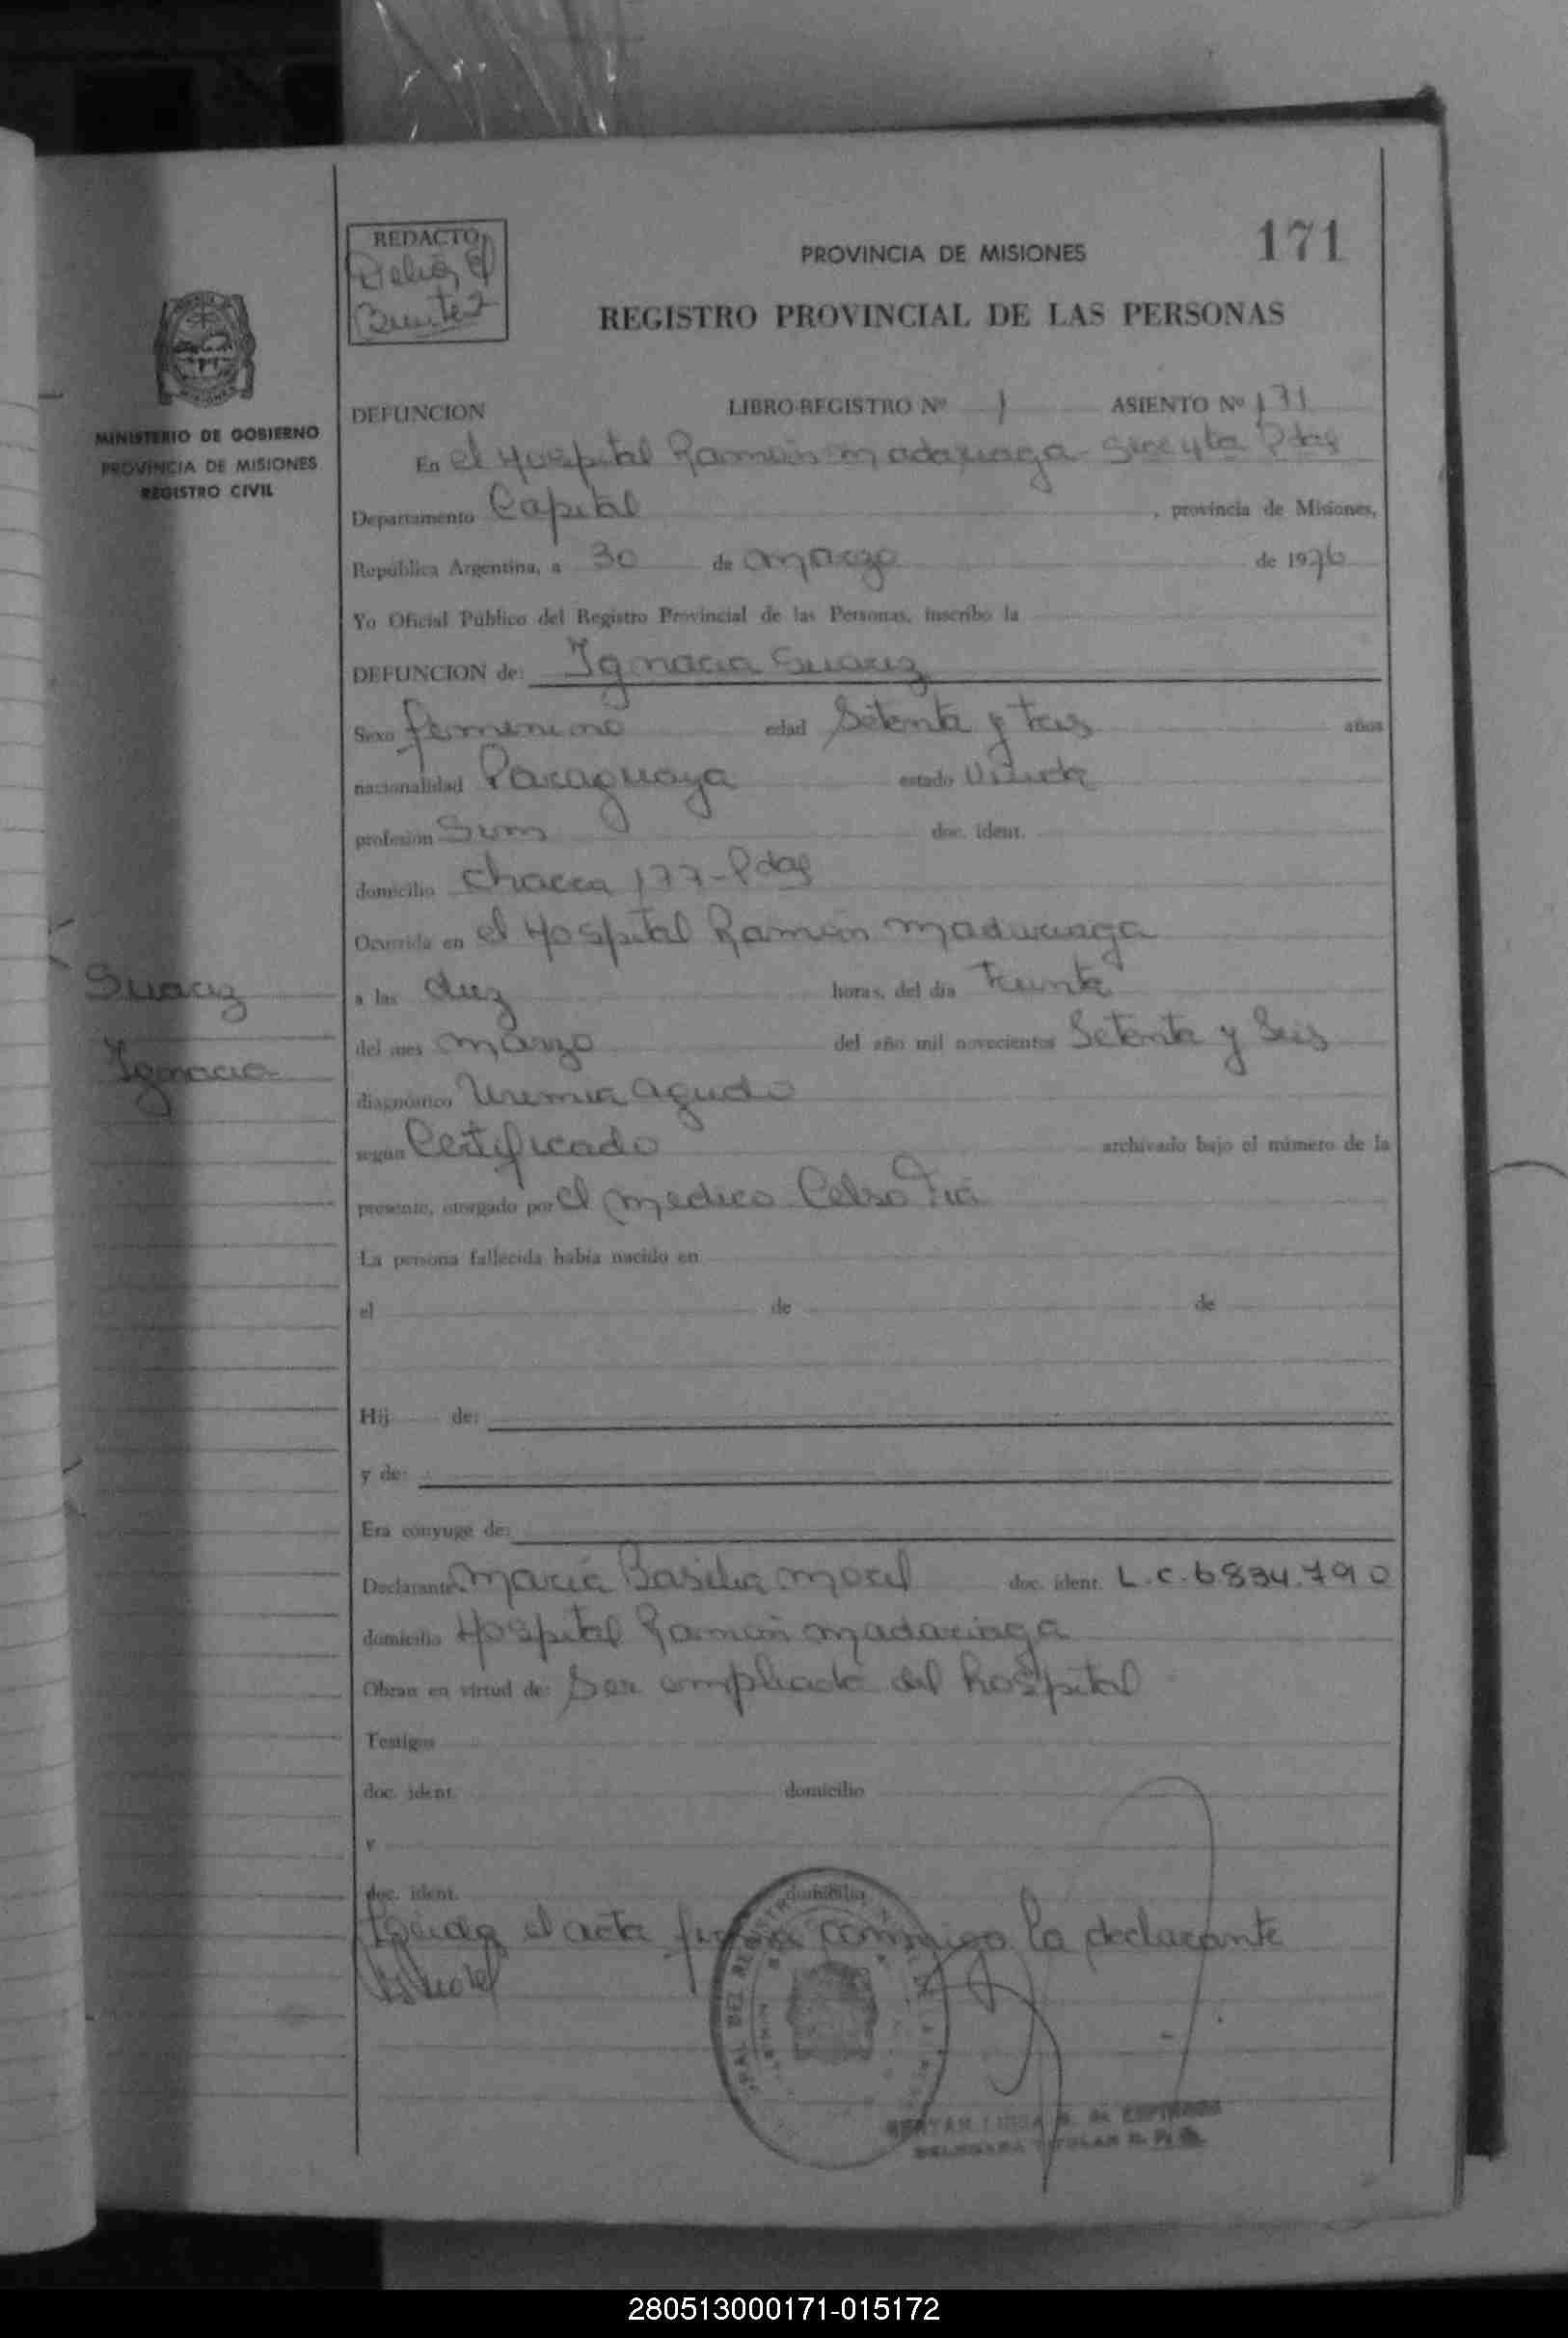 171
REDACTO
Delia E
Benitez
PROVINCIA DE MISIONES
REGISTRO PROVINCIAL DE LAS PERSONAS
MINISTERIO DE GOBIERNO
PROVINCIA DE MISIONES
REGISTRO CIVIL
DEFUNCION LIBRO-REGISTRO Nº 1 ASIENTO Nº 171
En el Hospital Ramón Madariaga Pdas
Departamento Capital , provincia de Misiones,
República Argentina, a 30 de marzo de 1976
Yo Oficial Público del Registro Provincial de las Personas, inscribo la
DEFUNCION de: Ignacia Suarez
Sexo femenino edad Setenta y tres años
nacionalidad Paraguaya estado Viuda
profesión doc. ident.
domicilio Chacra 177-Pdas
Ocurrida en el Hospital Ramón Madariaga
Suarez
Ignacia
a las diez horas, del día treinta
del mes marzo del año mil novecientos Setenta y Seis
diagnóstico Uremia aguda
según Certificado archivado bajo el número de la
presente, otorgado por el medico Celso
La persona fallecida había nacido en
el de de
Hij de:
y de:
Era cónyuge de:
Declarante María Basilia Morel doc. ident. L.C. 6834.790
domicilio Hospital Ramón Madariaga
Obran en virtud de: Ser empleada del hospital
Testigos
doc. ident. domicilio
y
doc. ident. domicilio
Leída el acta firma conmigo la declarante
DELEGADA TITULAR R. P.
280513000171-015172